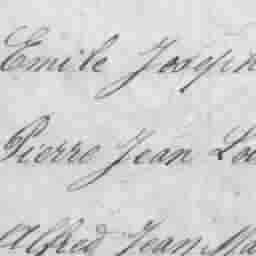 Emile Joseph
Pierre Jean Lou
Alfred Jean Ma